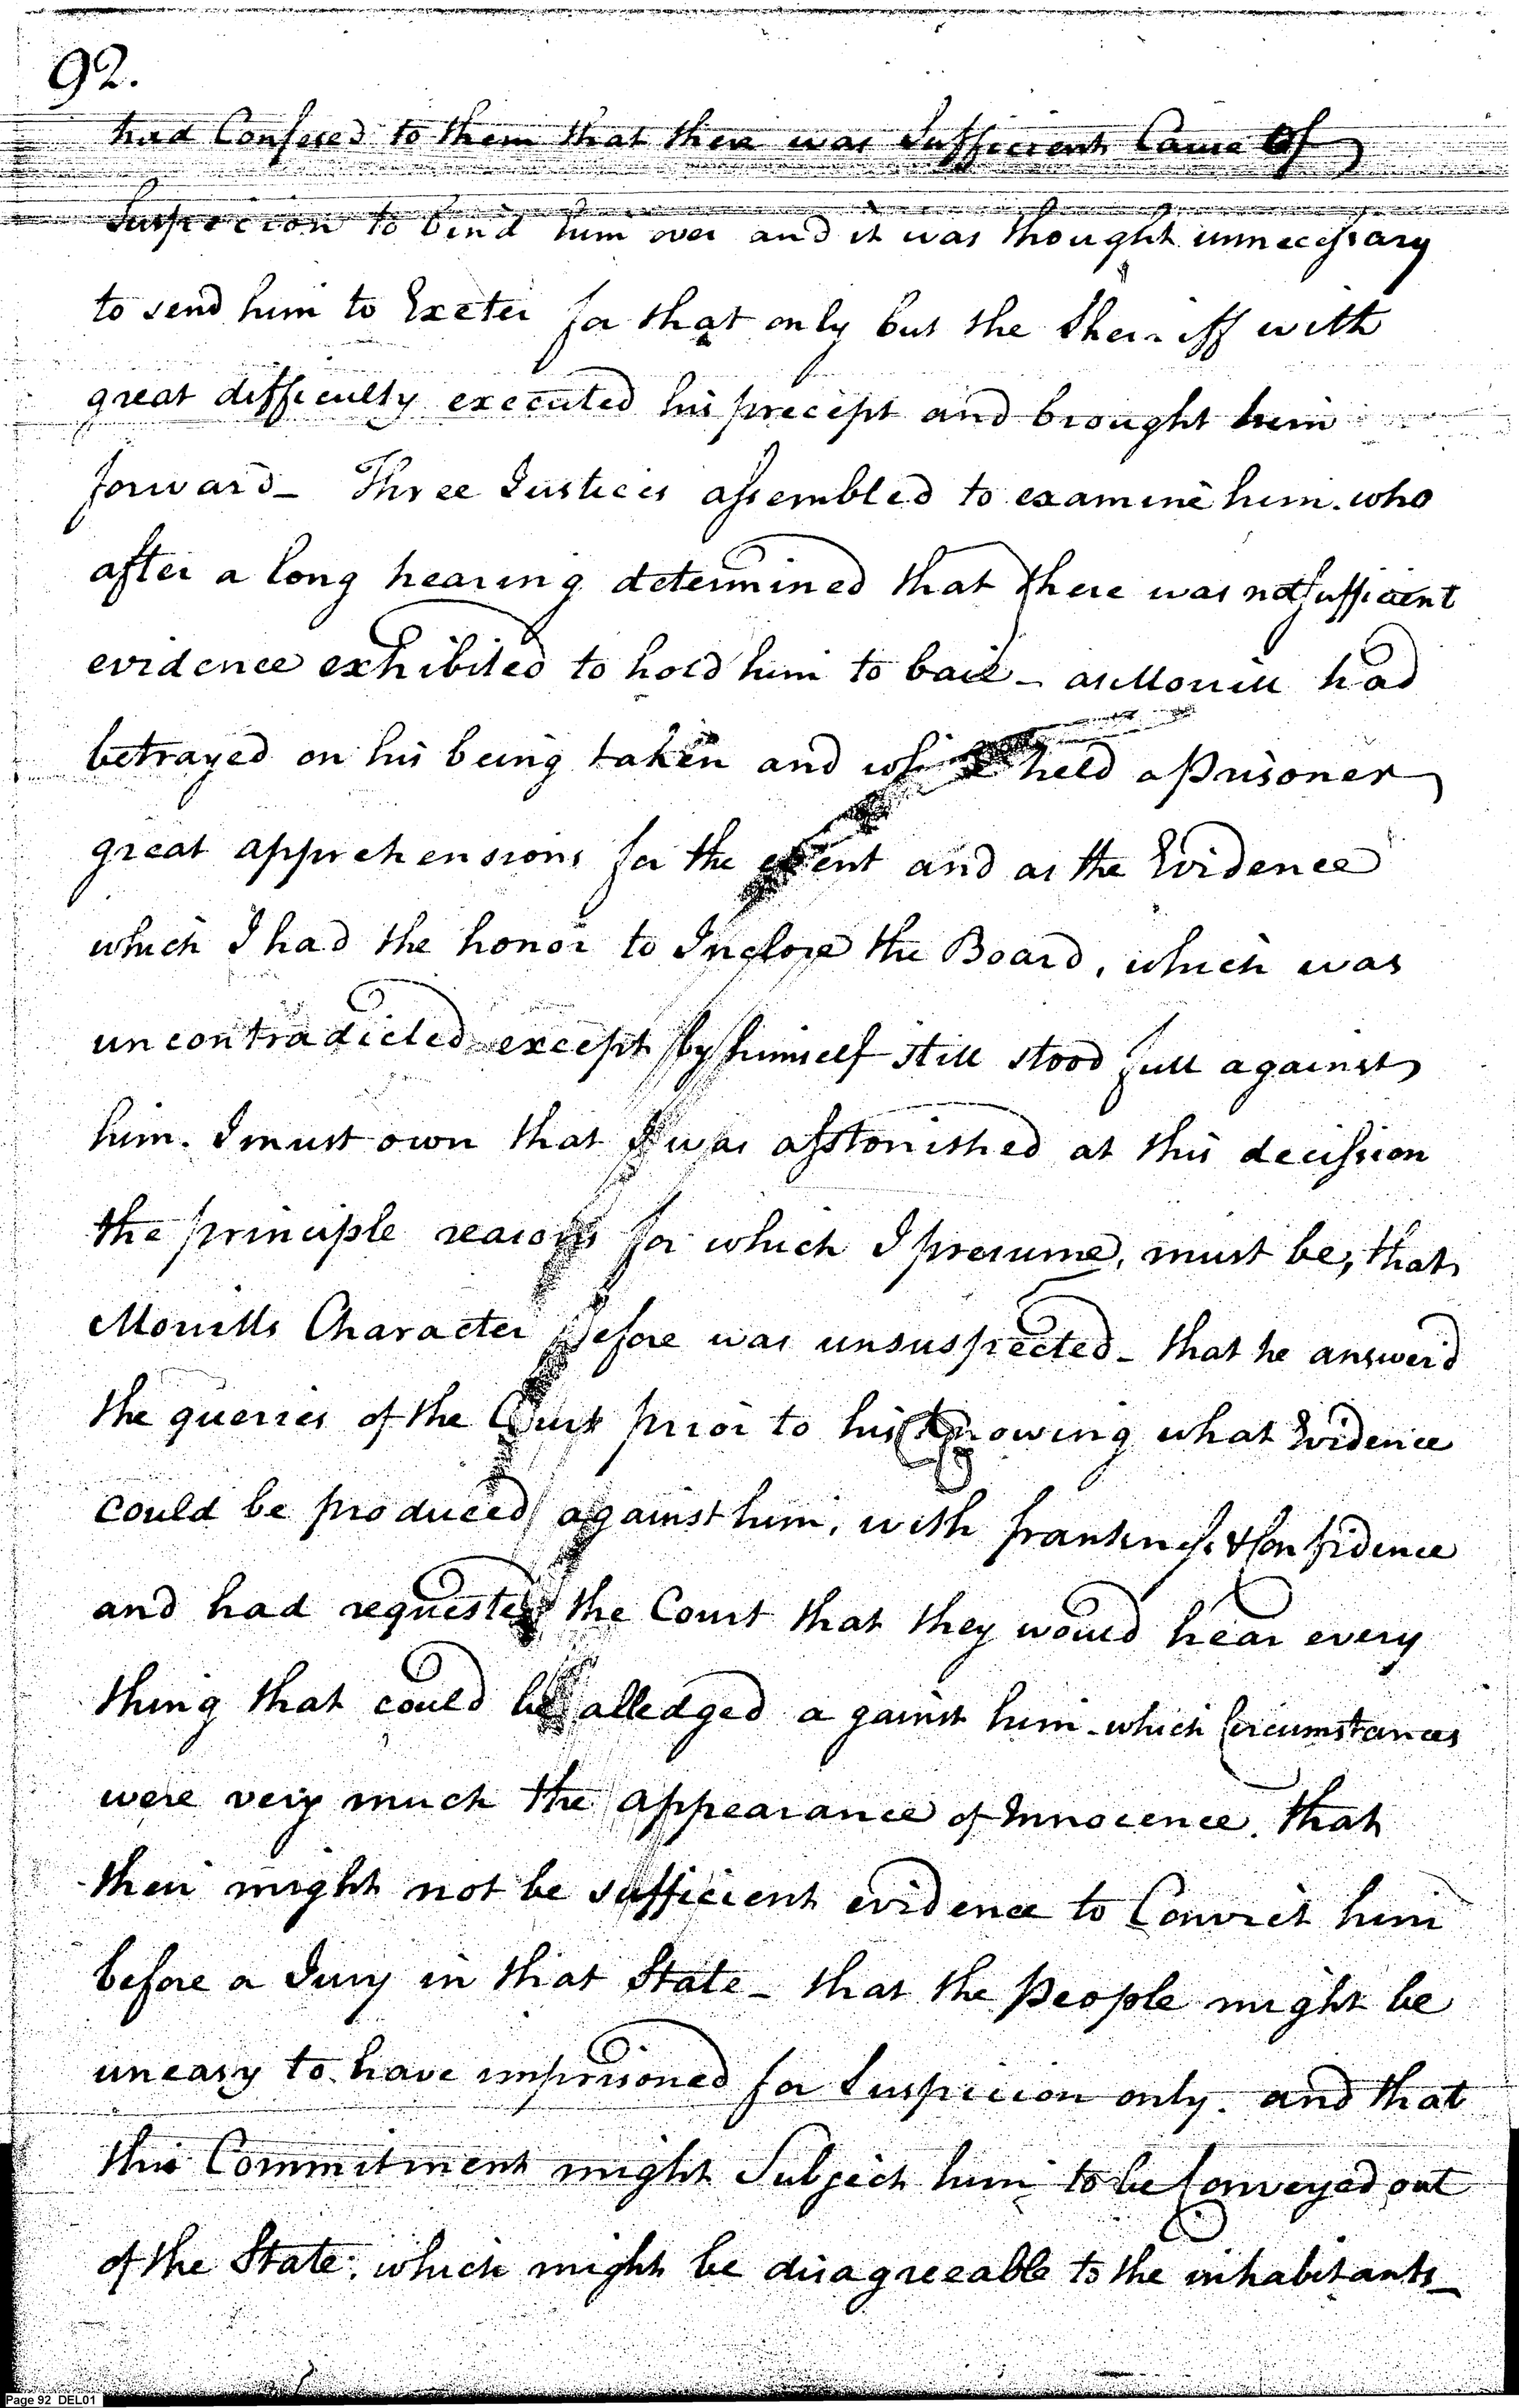 92.
had Confesed to them that there was Sufficient Cause Of
Suspicion to bind him over and it was thought unnecessary
to send him to Exeter for that only but the Sheriff with
great difficulty executed his precept and brought him
forward_ Three Justices assembled to examine him. who
after a long hearing determined that there was not sufficient
evidence exhibited to hold him to bail_ as Morrill had
betrayed on his being taken and while held a Prisoner
great apprehensions for the event and as the Evidence
which I had the honor to Inclose the Board, which was
uncontradicted except by himself still stood full against
him. I must own that I was asstonished at this decission
the principle reasons for which I presume, must be, that
Morrills Character before was unsuspected_ that he answer'd
the queries of the Court prior to his knowing what Evidence
could be produced against him, with frankness & Confidence
and had requested the Court that they would hear every
thing that could be alledged a gainst him_ which Circumstances
were very much the appearance of Innocence. that
their might not be sufficient evidence to Convict him
before a Jury in that State_ that the People might be
uneasy to have imprisoned for Suspicion only. and that
this Commitment might Subject him to be Conveyed out
of the State; which might be disagreeable to the inhabitants_
Page 92 DEL01